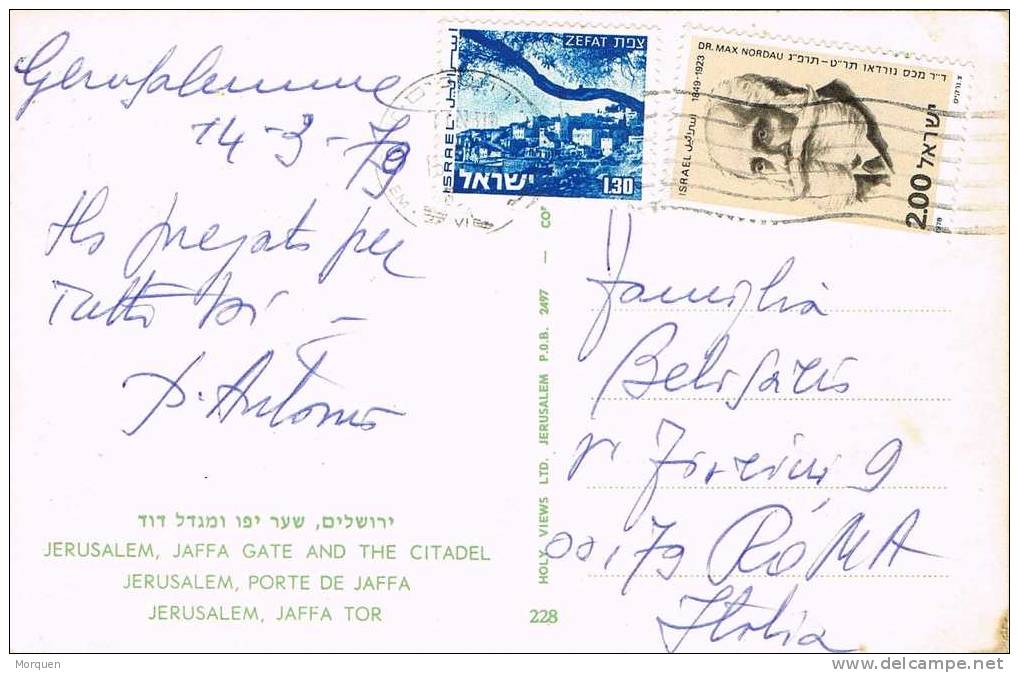 Gerusalemme
14-3-79
Ho pregato per
Tutti voi -
P. Antonio
ירושלים, שער יפו ומגדל דוד
JERUSALEM, JAFFA GATE AND THE CITADEL
JERUSALEM, PORTE DE JAFFA
JERUSALEM, JAFFA TOR
HOLY VIEWS LTD. JERUSALEM P.O.B. 2497 — CO
228
ZEFAT צפת
ISRAEL
ישראל
1.30
DR. MAX NORDAU ד״ר מכס נורדאו תר״ט-תרפ״ג
1849-1923
ISRAEL
ישראל
2.00
1978
Famiglia
9
00179 ROMA
Italia
Morquen
www.delcampe.net